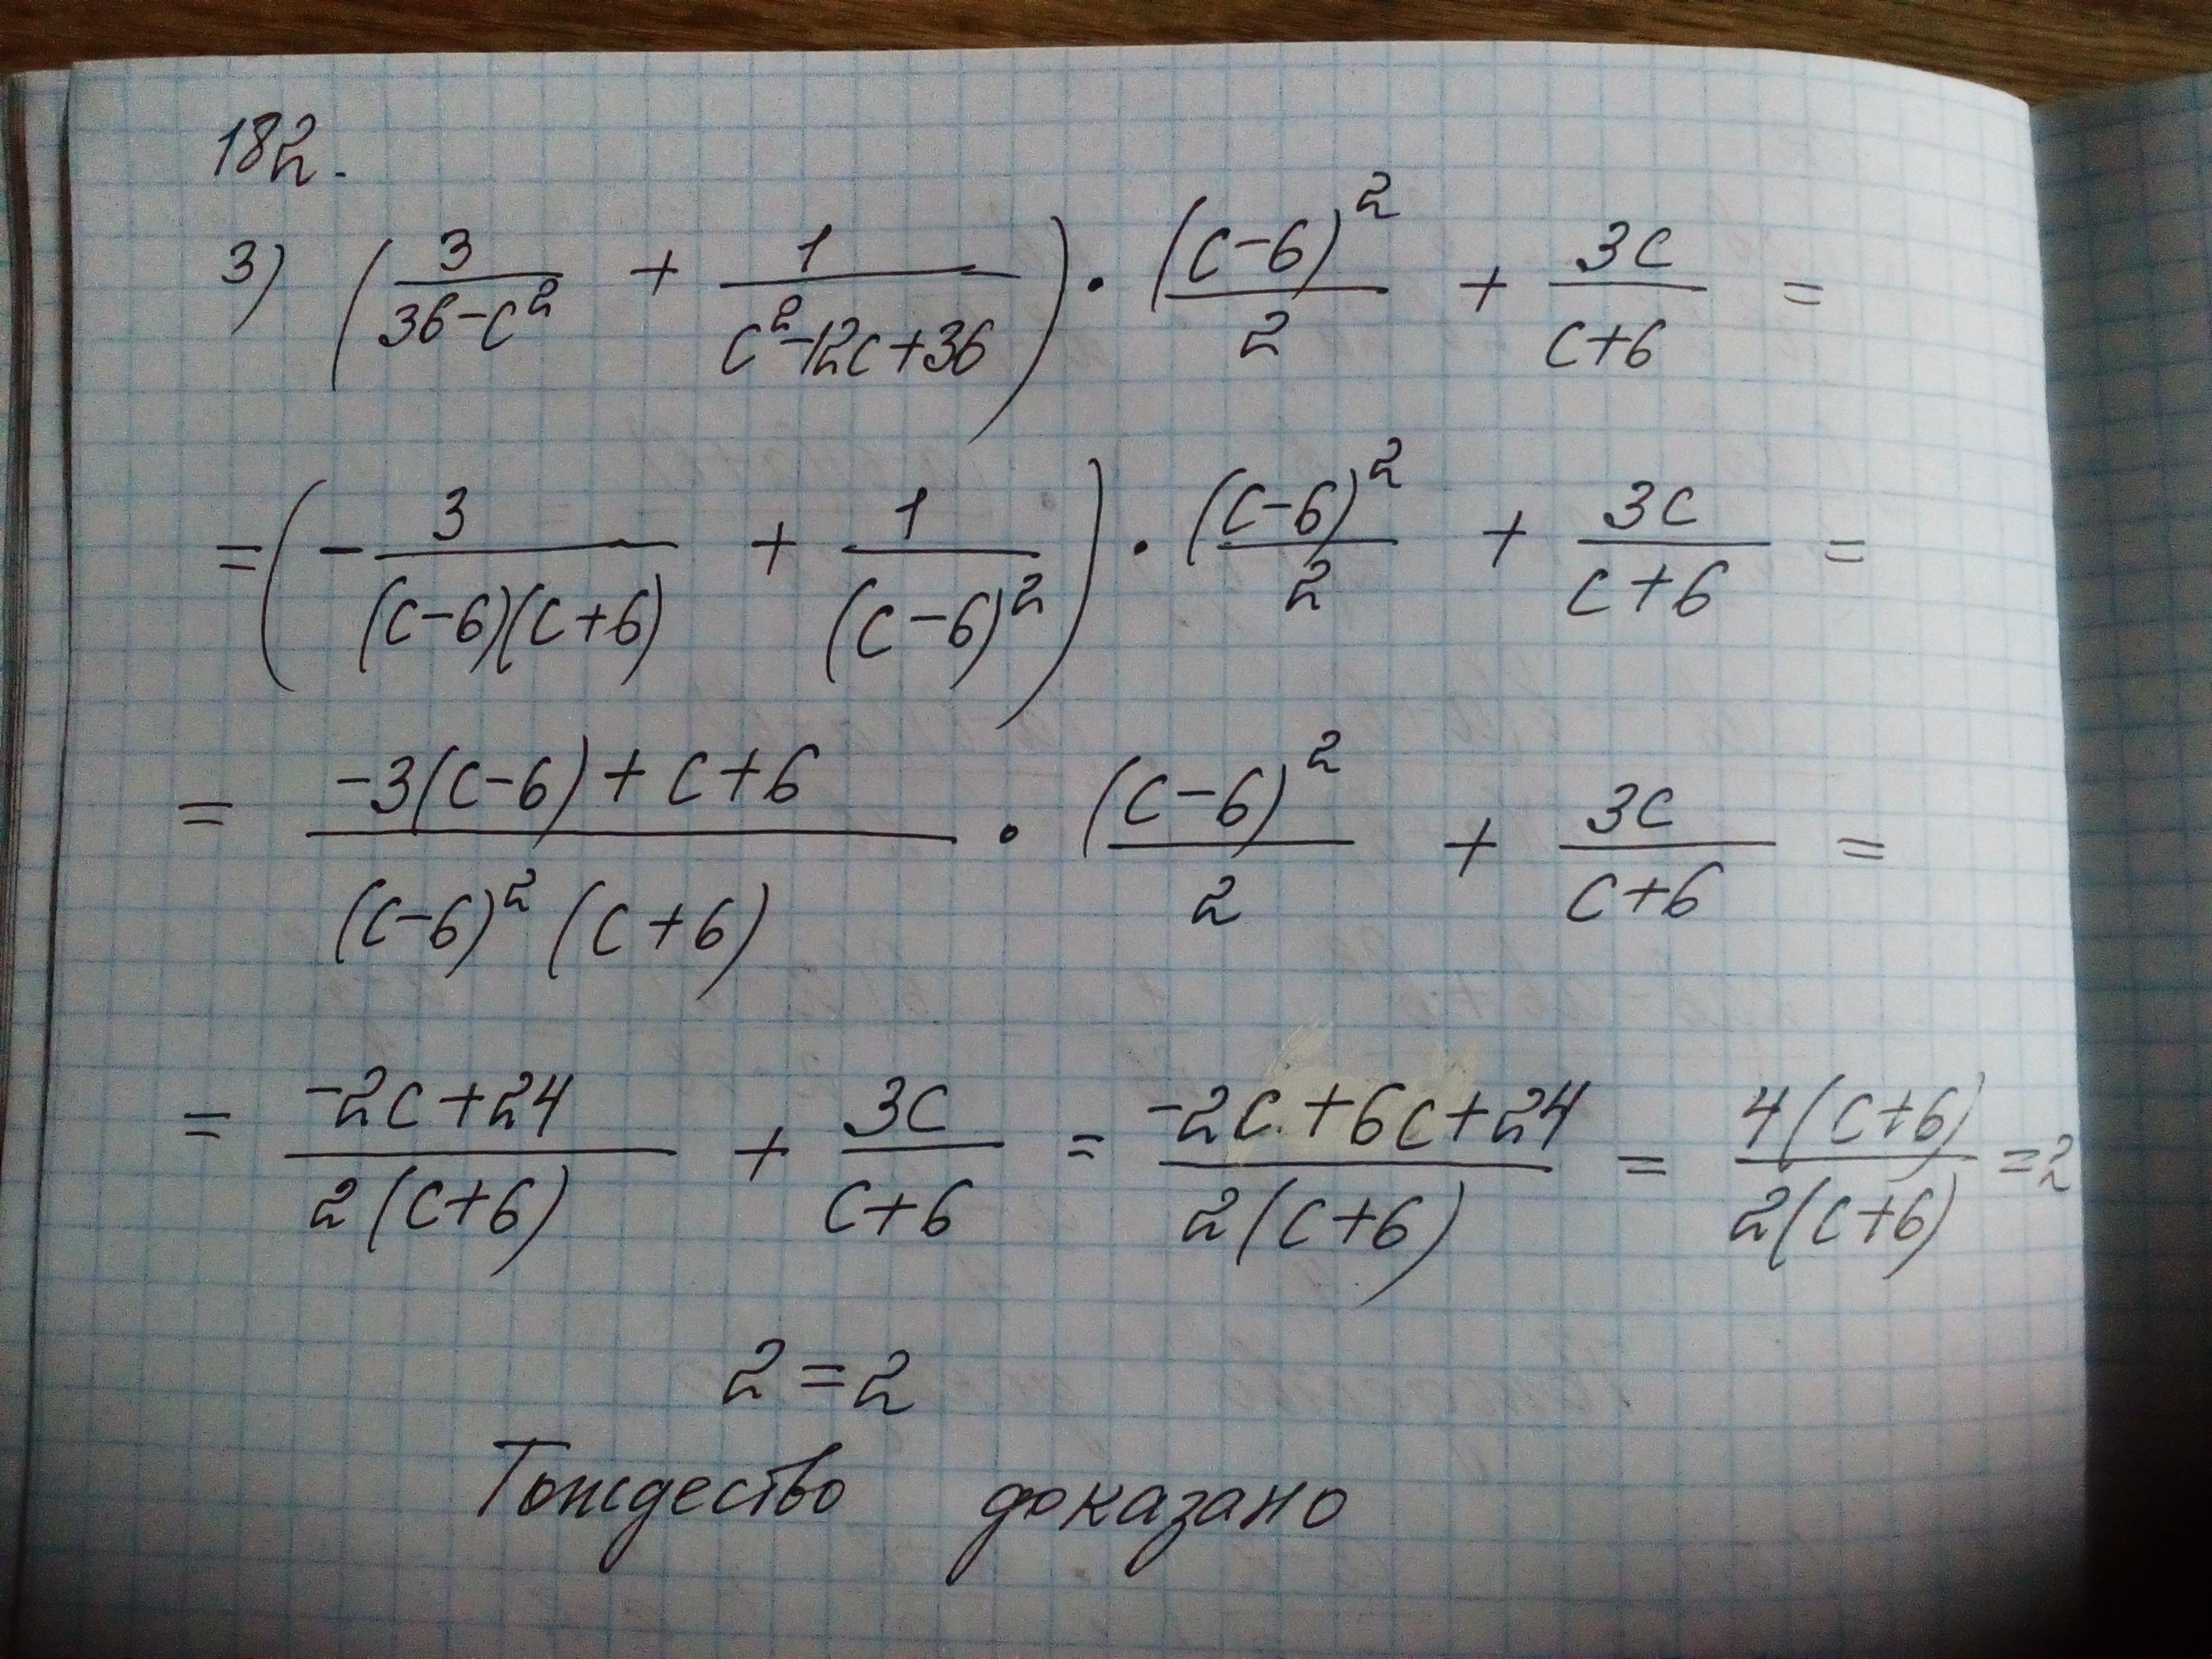 182.
3) (3/(36-c²) + 1/(c²-12c+36)) · (c-6)²/2 + 3c/(c+6) =
= (- 3/((c-6)(c+6)) + 1/(c-6)²) · (c-6)²/2 + 3c/(c+6) =
= (-3(c-6)+c+6)/((c-6)²(c+6)) · (c-6)²/2 + 3c/(c+6) =
= (-2c+24)/(2(c+6)) + 3c/(c+6) = (-2c+6c+24)/(2(c+6)) = 4(c+6)/(2(c+6)) = 2
2 = 2
Тождество доказано